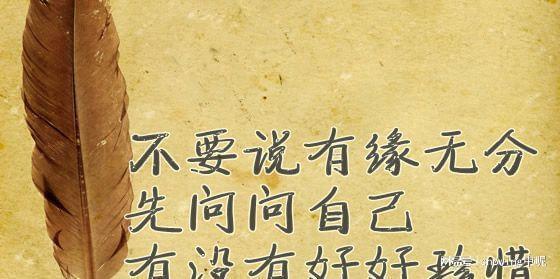 不要说有缘无分
先问问自己
有没有好好珍惜